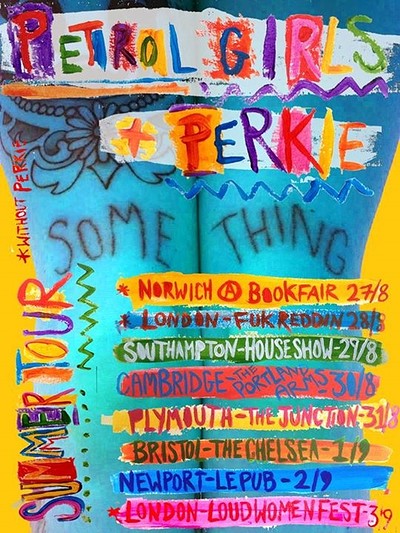 PETROL GIRLS
+ PERKIE
*WITHOUT PERKIE
SOME THING
SUMMER TOUR
* NORWICH Ⓐ BOOKFAIR 27/8
* LONDON-FUK REDDIN 28/8
SOUTHAMPTON-HOUSE SHOW-29/8
CAMBRIDGE-THE PORTLAND ARMS 30/8
PLYMOUTH-THE JUNCTION-31/8
BRISTOL-THE CHELSEA-1/9
NEWPORT-LE PUB-2/9
*LONDON-LOUD WOMEN FEST-3/9